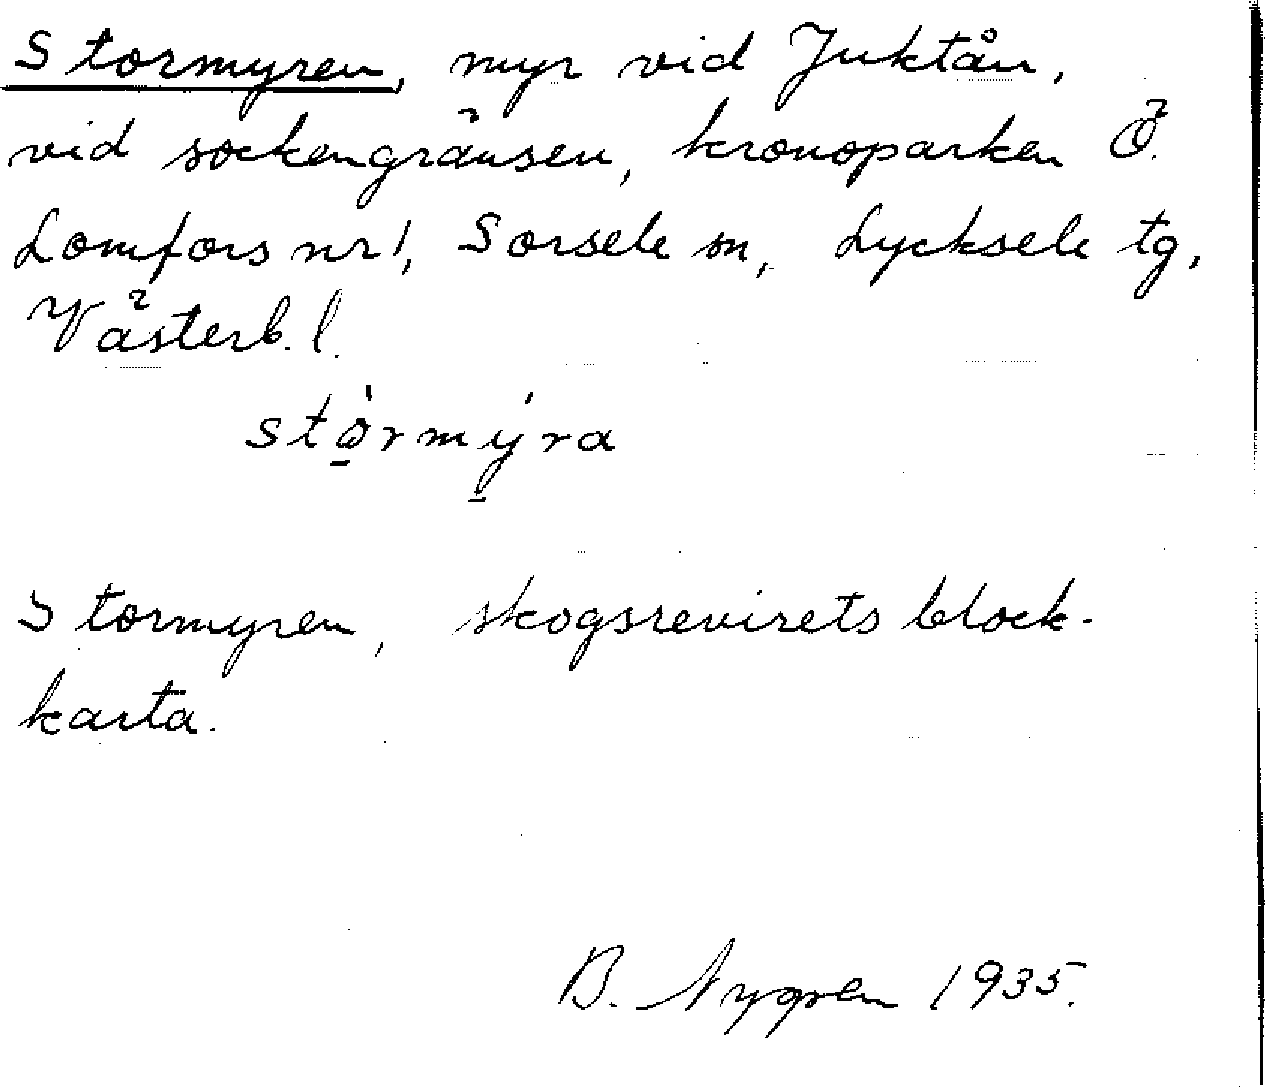 Stormyren, myr vid Juktån,
vid sockengränsen, kronoparken Ö.
Lomfors nr 1, Sorsele sn, Lycksele tg,
Västerb. l.
stò̠rmý̠ra
Stormyren, skogsrevirets block-
karta.
B. Nygren 1935.